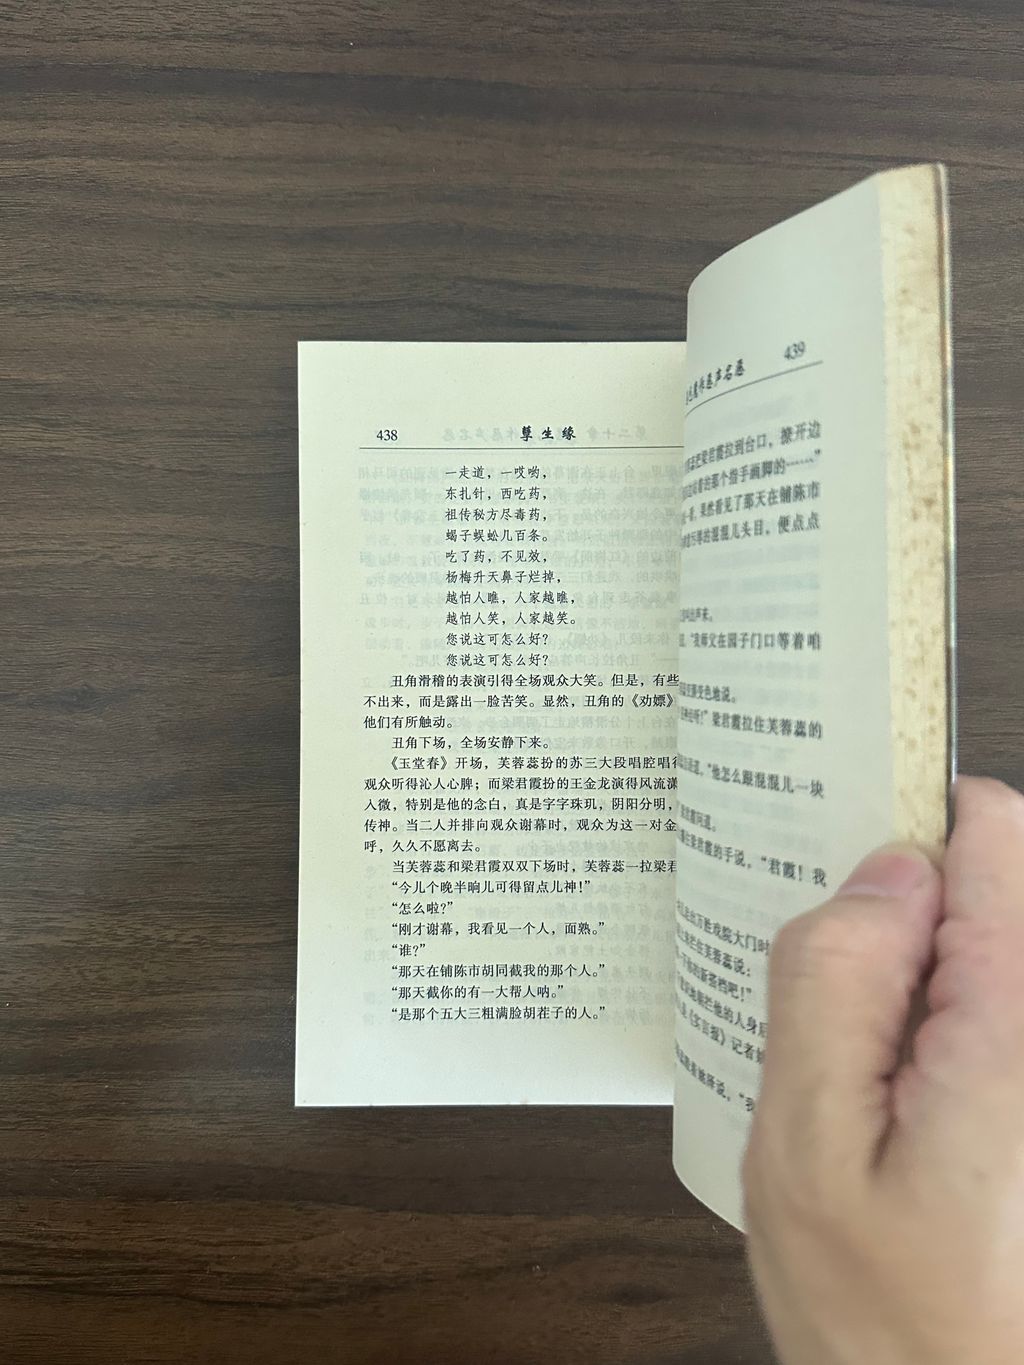 438
孽生缘
一走道，一哎哟，
东扎针，西吃药，
祖传秘方尽毒药，
蝎子蜈蚣几百条。
吃了药，不见效，
杨梅升天鼻子烂掉，
越怕人瞧，人家越瞧，
越怕人笑，人家越笑。
您说这可怎么好？
您说这可怎么好？
丑角滑稽的表演引得全场观众大笑。但是，有些
不出来，而是露出一脸苦笑。显然，丑角的《劝嫖》
他们有所触动。
丑角下场，全场安静下来。
《玉堂春》开场，芙蓉蕊扮的苏三大段唱腔唱得
观众听得沁人心脾；而梁君霞扮的王金龙演得风流潇
入微，特别是他的念白，真是字字珠玑，阴阳分明，
传神。当二人并排向观众谢幕时，观众为这一对金
呼，久久不愿离去。
当芙蓉蕊和梁君霞双双下场时，芙蓉蕊一拉梁君
“今儿个晚半晌儿可得留点儿神！”
“怎么啦？”
“刚才谢幕，我看见一个人，面熟。”
“谁？”
“那天在铺陈市胡同截我的那个人。”
“那天截你的有一大帮人呐。”
“是那个五大三粗满脸胡茬子的人。”
439
声名恶
梁君霞拉到台口，撩开边
着的那个指手画脚的……”
看，果然看见了那天在铺陈市
的混混儿头目，便点点
的声来。
“我师父在园子门口等着咱
色地说。
听！”梁君霞拉住芙蓉蕊的
道，“他怎么跟混混儿一块
问道。
的手说，“君霞！我
万胜戏院大门时
拦住芙蓉蕊说：
的新搭档吧！”
他的人身后
《实言报》记者
说，“我